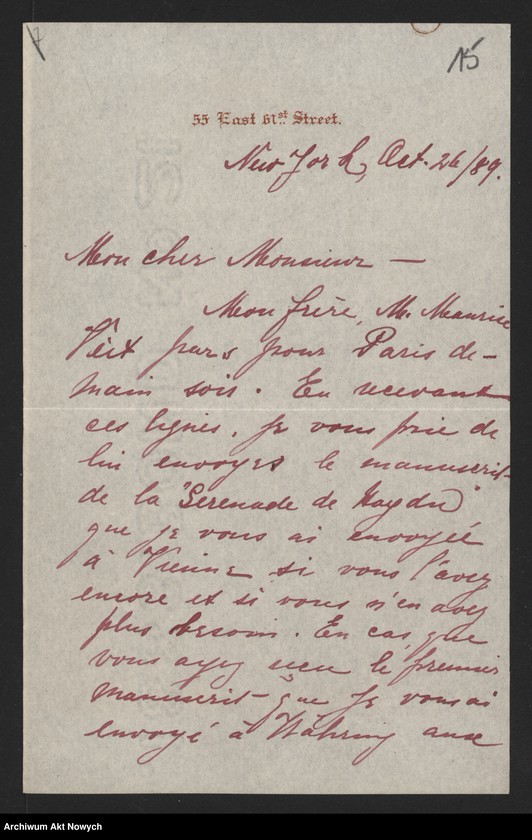 15
55 East 61st Street.
New York, Oct. 26/89.
Mon cher Monsieur —
Mon frère, M. Maurice
Veit pars pour Paris de-
main soir. En recevant
ces lignes, je vous prie de
lui envoyer le manuscrit
de la "Serenade de Haydn"
que je vous ai envoyée
à Vienne si vous l'avez
encore et si vous n'en avez
plus besoin. En cas que
vous ayez recu le premier
manuscrit que je vous ai
envoyé à Währing aux
Archiwum Akt Nowych